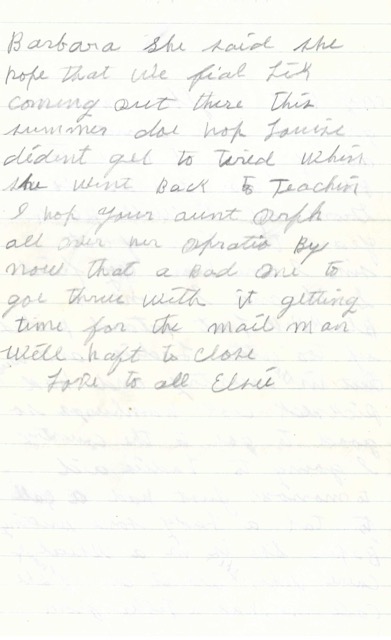 Barbara she said she
hope that we fial Lik
coming out there this
summer doe hop Louise
dident get to tired when
she went Back to Teachin
I hop your aunt Orph
all over her opratio By
now that a Bad one to
goe threw with it getting
time for the mail man
Well haft to close
Love to all Elsie